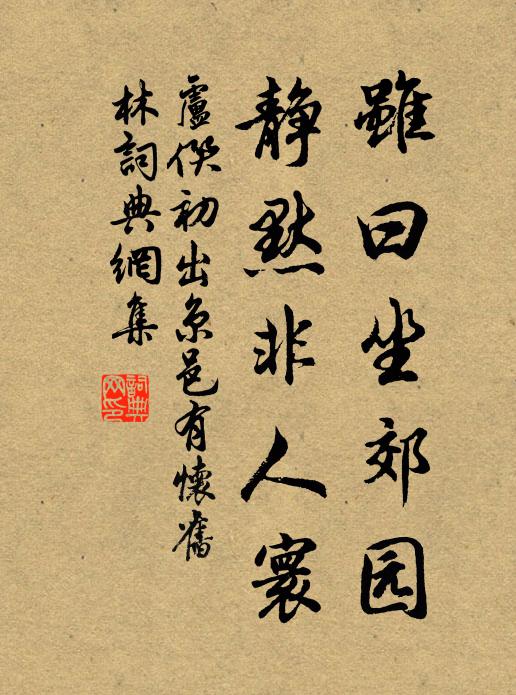 雖曰坐郊园
静默非人寰
盧僎初出京邑有懷舊
林詞典網集
詞典
网印